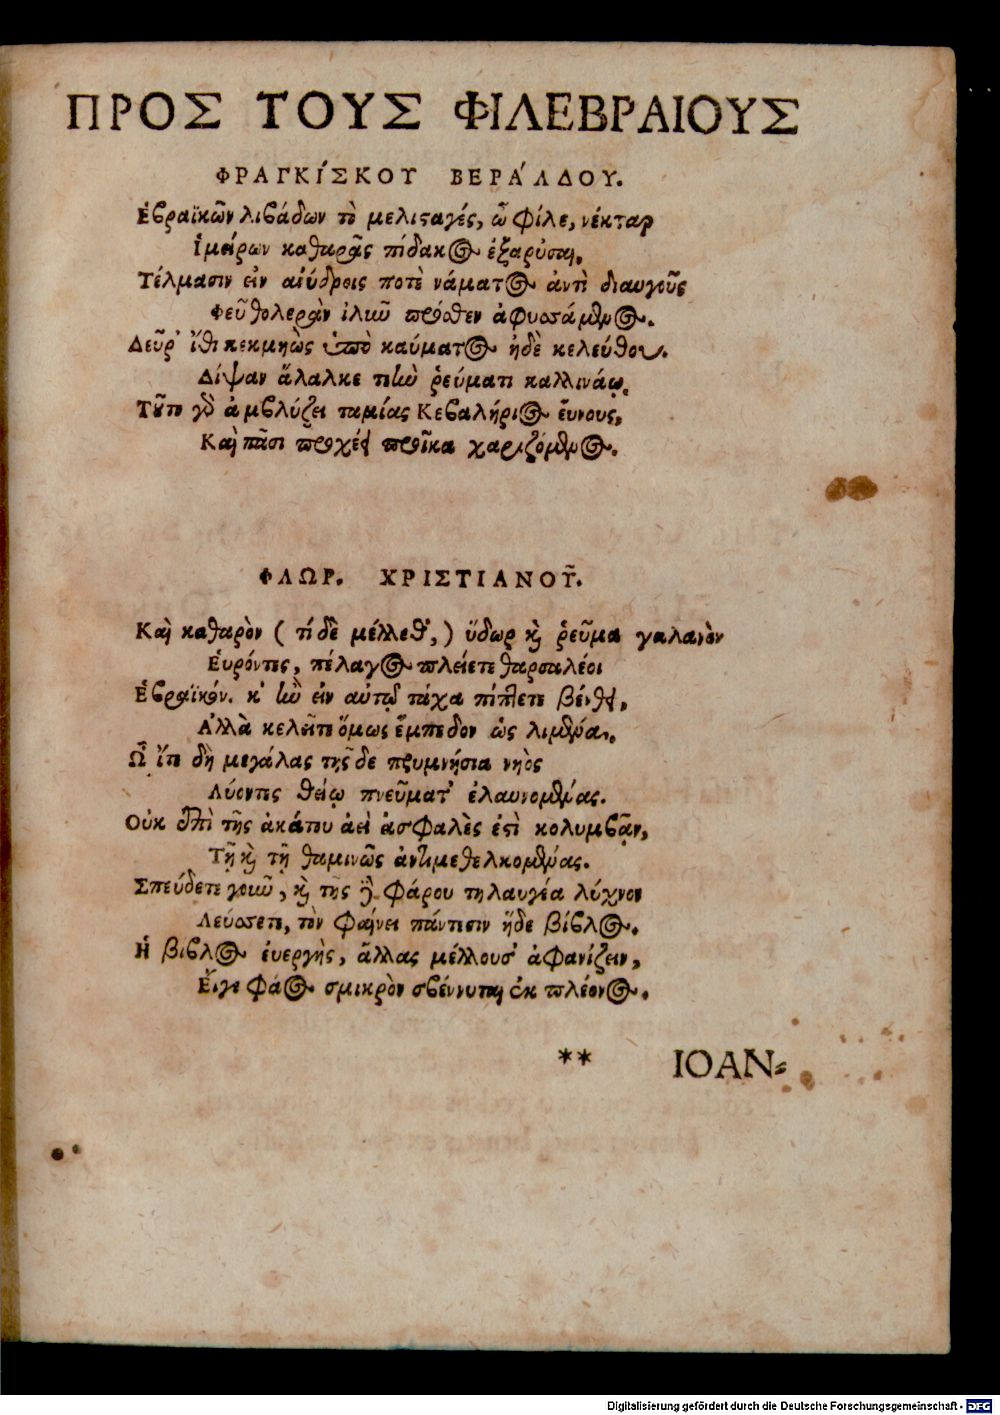 ΠΡΟΣ ΤΟΥΣ ΦΙΛΕΒΡΑΙΟΥΣ
ΦΡΑΓΚΊΣΚΟΥ ΒΕΡΆΛΔΟΥ.
Ἑβραϊκῶν λιβάδων τὸ μελισταγές, ὦ φίλε, νέκταρ
Ἱμείρων καθαρᾶς πίδακος ἐξαρύσαι,
Τέλμασιν εἰν ἀϊύδροις ποτὲ νάματος ἀντὶ διαυγοῦς
Φεῦ θολερὰν ἰλιῶ πρόσθεν ἀφυσσάμενος.
Δεῦρ' ἴθι κεκμηὼς ὑπὸ καύματος ἠδὲ κελεύθου.
Δίψαν ἄλαλκε τεὴν ῥεύματι καλλινάῳ.
Τοῦτο γὸ ἀμβλύζει ταμίας Κεβαλήριος εὔνους,
Καὶ πᾶσι προχέει προῖκα χαριζόμενος.
ΦΛΩΡ. ΧΡΙΣΤΙΑΝΟΥ͂.
Καὶ καθαρὸν ( τί δὲ μέλλεθ', ) ὕδωρ καὶ ῥεῦμα γαλανὸν
Εὑρόντες, πέλαγος πλείετε θαρσαλέοι
Ἑβραϊκόν. κ' ἢν εἰν αὐτῷ τάχα πίπτετε βένθει,
Ἀλλὰ κελεῖτε ὅμως ἔμπεδον ὡς λιμένα.
Ὦ ἴτε δὴ μεγάλας τῆς δε πρυμνήσια νηὸς
Λύοντες θείῳ πνεῦματ' ἐλαυνομένας.
Οὐκ ἐπὶ τῆς ἀκάτου ἀεὶ ἀσφαλὲς ἐστὶ κολυμβᾷν,
Τῇ καὶ τῇ θαμινῶς ἀντιμεθελκομένας.
Σπεύδετε γοιῶ, καὶ τῆς Φάρου τηλαυγέα λύχνον
Λεύσσετε, τὸν φαίνει πάντεσιν ἥδε βίβλος.
Ἡ βίβλος ἐυεργὴς, ἄλλας μέλλουσ' ἀφανίζειν,
Εἴγε φάος σμικρὸν σβέννυται ἐκ πλέονος.
** ΙΟΑΝ-
Digitalisierung gefördert durch die Deutsche Forschungsgemeinschaft - DFG